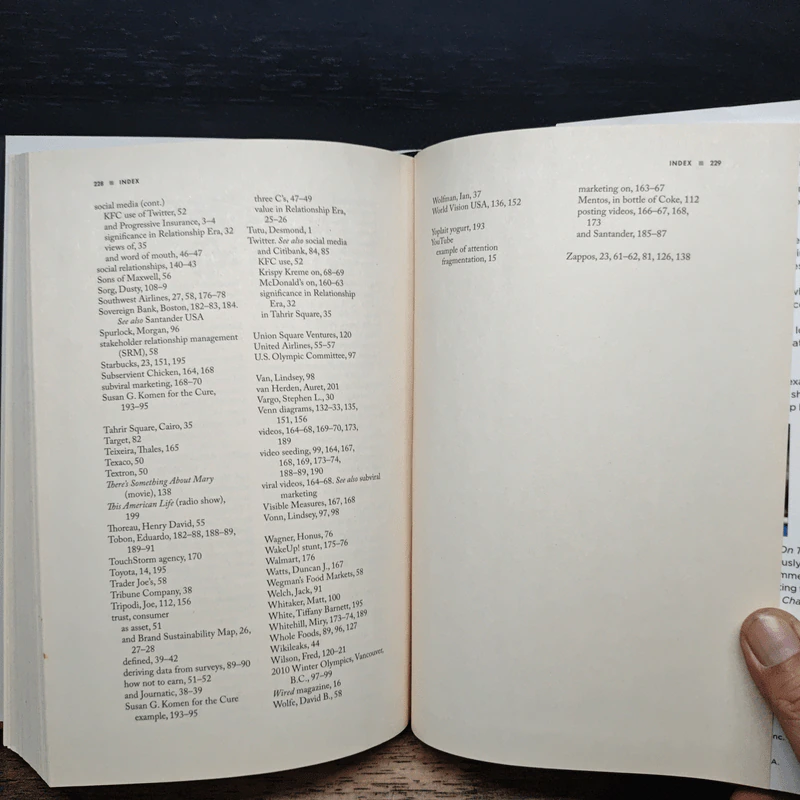 228 ■ INDEX
social media (cont.)
KFC use of Twitter, 52
and Progressive Insurance, 3–4
significance in Relationship Era, 32
views of, 35
and word of mouth, 46–47
social relationships, 140–43
Sons of Maxwell, 56
Sorg, Dusty, 108–9
Southwest Airlines, 27, 58, 176–78
Sovereign Bank, Boston, 182–83, 184.
See also Santander USA
Spurlock, Morgan, 96
stakeholder relationship management
(SRM), 58
Starbucks, 23, 151, 195
Subservient Chicken, 164, 168
subviral marketing, 168–70
Susan G. Komen for the Cure,
193–95
Tahrir Square, Cairo, 35
Target, 82
Teixeira, Thales, 165
Texaco, 50
Textron, 50
There's Something About Mary
(movie), 138
This American Life (radio show),
199
Thoreau, Henry David, 55
Tobon, Eduardo, 182–88, 188–89,
189–91
TouchStorm agency, 170
Toyota, 14, 195
Trader Joe's, 58
Tribune Company, 38
Tripodi, Joe, 112, 156
trust, consumer
as asset, 51
and Brand Sustainability Map, 26,
27–28
defined, 39–42
deriving data from surveys, 89–90
how not to earn, 51–52
and Journatic, 38–39
Susan G. Komen for the Cure
example, 193–95
three C's, 47–49
value in Relationship Era,
25–26
Tutu, Desmond, 1
Twitter. See also social media
and Citibank, 84, 85
KFC use, 52
Krispy Kreme on, 68–69
McDonald's on, 160–63
significance in Relationship
Era, 32
in Tahrir Square, 35
Union Square Ventures, 120
United Airlines, 55–57
U.S. Olympic Committee, 97
Van, Lindsey, 98
van Herden, Auret, 201
Vargo, Stephen L., 30
Venn diagrams, 132–33, 135,
151, 156
videos, 164–68, 169–70, 173,
189
video seeding, 99, 164, 167,
168, 169, 173–74,
188–89, 190
viral videos, 164–68. See also subviral
marketing
Visible Measures, 167, 168
Vonn, Lindsey, 97, 98
Wagner, Honus, 76
WakeUp! stunt, 175–76
Walmart, 176
Watts, Duncan J., 167
Wegman's Food Markets, 58
Welch, Jack, 91
Whitaker, Matt, 100
White, Tiffany Barnett, 195
Whitehill, Mity, 173–74, 189
Whole Foods, 89, 96, 127
Wikileaks, 44
Wilson, Fred, 120–21
2010 Winter Olympics, Vancouver,
B.C., 97–99
Wired magazine, 16
Wolfe, David B., 58
INDEX ■ 229
Wolfman, Ian, 37
World Vision USA, 136, 152
Yoplait yogurt, 193
YouTube
example of attention
fragmentation, 15
marketing on, 163–67
Mentos, in bottle of Coke, 112
posting videos, 166–67, 168,
173
and Santander, 185–87
Zappos, 23, 61–62, 81, 126, 138